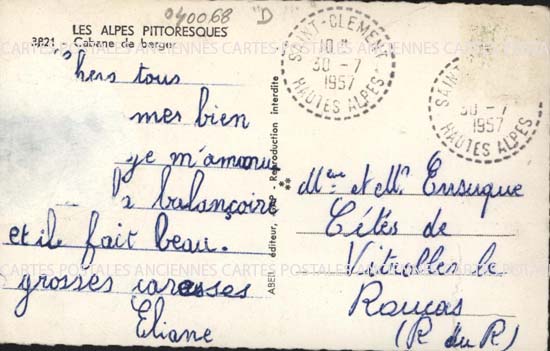 040068 "D"
LES ALPES PITTORESQUES
3821 Cabane de berger
chers tous
mes bien
je m'amuse
la balançoire
et il fait beau.
grosses caresses
Eliane
ABEIL éditeur, GAP - Reproduction interdite
SAINT-CLEMENT
10 H
30 - 7
1957
HAUTES ALPES
SAINT-
30 - 7
1957
HAUTES ALPES
Mme et Mr
Cités de
Vitrolles le
Roucas
(R du R)
CARTES POSTALES ANCIENNES